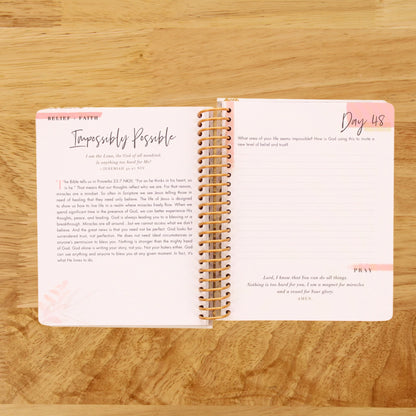 BELIEF + FAITH
Impossibly Possible
I am the Lord, the God of all mankind.
Is anything too hard for Me?
- JEREMIAH 32:27 NIV
The Bible tells us in Proverbs 23:7 NKJV, "For as he thinks in his heart, so
is he." That means that our thoughts reflect who we are. For that reason,
miracles are a mindset. So often in Scripture we see Jesus telling those in
need of healing that they need only believe. The life of Jesus is designed
to show us how to live life in a realm where miracles freely flow. When we
spend significant time in the presence of God, we can better experience His
thoughts, peace, and leading. God is always leading you to a blessing or a
breakthrough. Miracles are all around... but we cannot access what we don't
believe. And the great news is that you need not be perfect! God looks for
surrendered trust, not perfection. He does not need ideal circumstances or
anyone's permission to bless you. Nothing is stronger than the mighty hand
of God. God alone is writing your story, not you. Nor your haters either. God
can use anything and anyone to bless you at any given moment. In fact, it's
what He loves to do.
Day 48
What area of your life seems impossible? How is God using this to invite a
new level of belief and trust?
PRAY
Lord, I know that You can do all things.
Nothing is too hard for you. I am a magnet for miracles
and a vessel for Your glory.
AMEN.